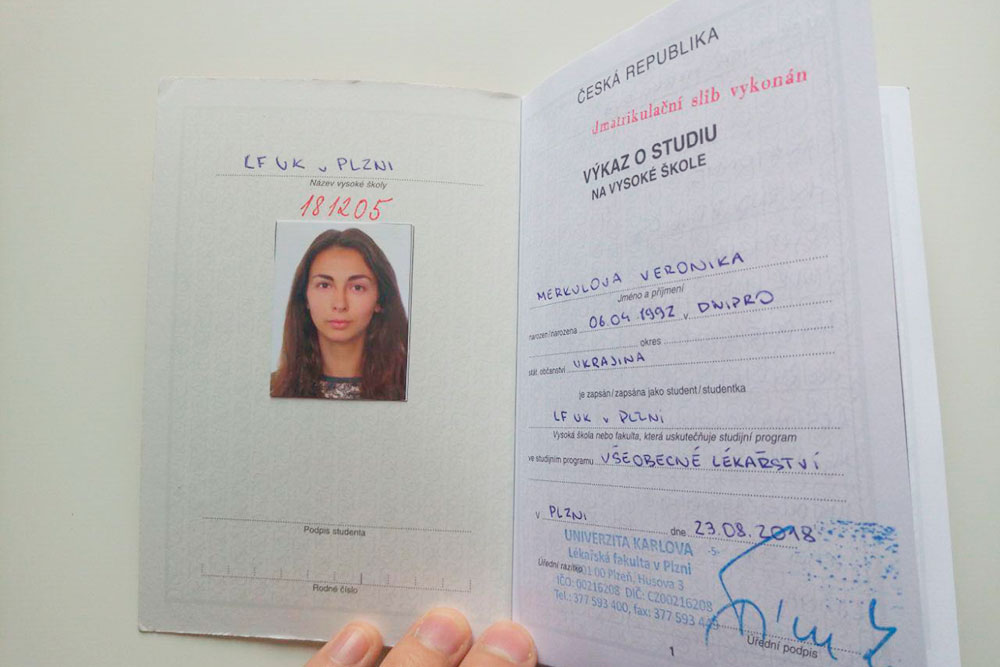 LF UK v PLZNI
Název vysoké školy
181205
Podpis studenta
Rodné číslo
ČESKÁ REPUBLIKA
Jmatrikulační slib vykonán
VÝKAZ O STUDIU
NA VYSOKÉ ŠKOLE
MERKULOVA VERONIKA
Jméno a příjmení
narozen/narozena 06.04 1992 v DNIPRO
okres
stát. občanství UKRAJINA
je zapsán/zapsána jako student/studentka
LF UK v PLZNI
Vysoká škola nebo fakulta, která uskutečňuje studijní program
ve studijním programu VŠEOBECNÉ LÉKAŘSTVÍ
V PLZNI dne 23.08.2018
UNIVERZITA KARLOVA -5-
Lékařská fakulta v Plzni
Úřední razítko 301 00 Plzeň, Husova 3
IČO: 00216208 DIČ: CZ00216208
Tel.: 377 593 400, fax: 377 593 449
Úřední podpis
1